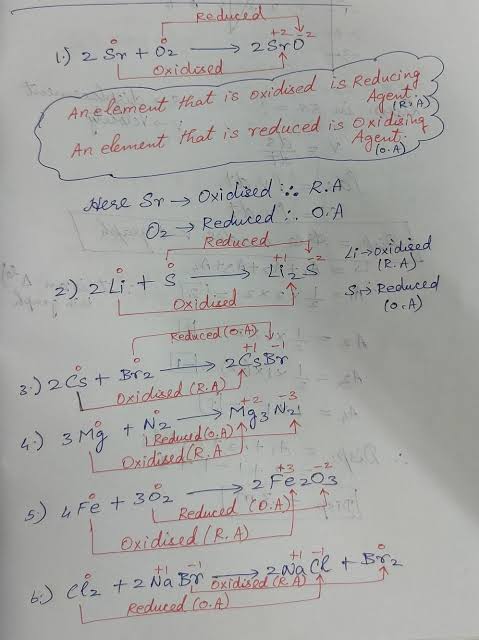 Reduced
0 0 +2 -2
1.) 2 Sr + O2 ⟶ 2SrO
Oxidised
An element that is oxidised is Reducing
Agent. (R.A)
An element that is reduced is Oxidising
Agent. (O.A)
Here Sr → Oxidised ∴ R.A
O2 → Reduced ∴ O.A
Reduced
0 0 +1 -2
2.) 2 Li + S ⟶ Li2S
Oxidised
Li → oxidised
(R.A)
S → Reduced
(O.A)
Reduced (O.A)
0 0 +1 -1
3.) 2Cs + Br2 ⟶ 2CsBr
Oxidised (R.A)
0 0 +2 -3
4.) 3 Mg + N2 ⟶ Mg3N2
Reduced (O.A)
Oxidised (R.A
0 0 +3 -2
5.) 4Fe + 3O2 ⟶ 2Fe2O3
Reduced (O.A)
Oxidised (R.A)
0 +1 -1 +1 -1 0
6.) Cl2 + 2NaBr ⟶ 2NaCl + Br2
Oxidised (R.A)
Reduced (O.A)